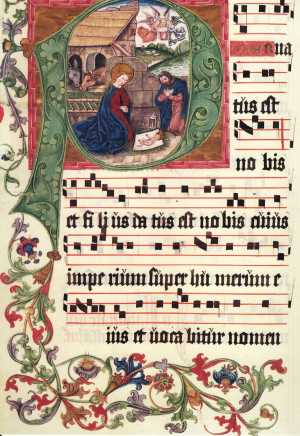 er na
tus est
no bis
et fi li us da tus est no bis cuius
impe rium super hu merum e
ius et voca bitur nomen